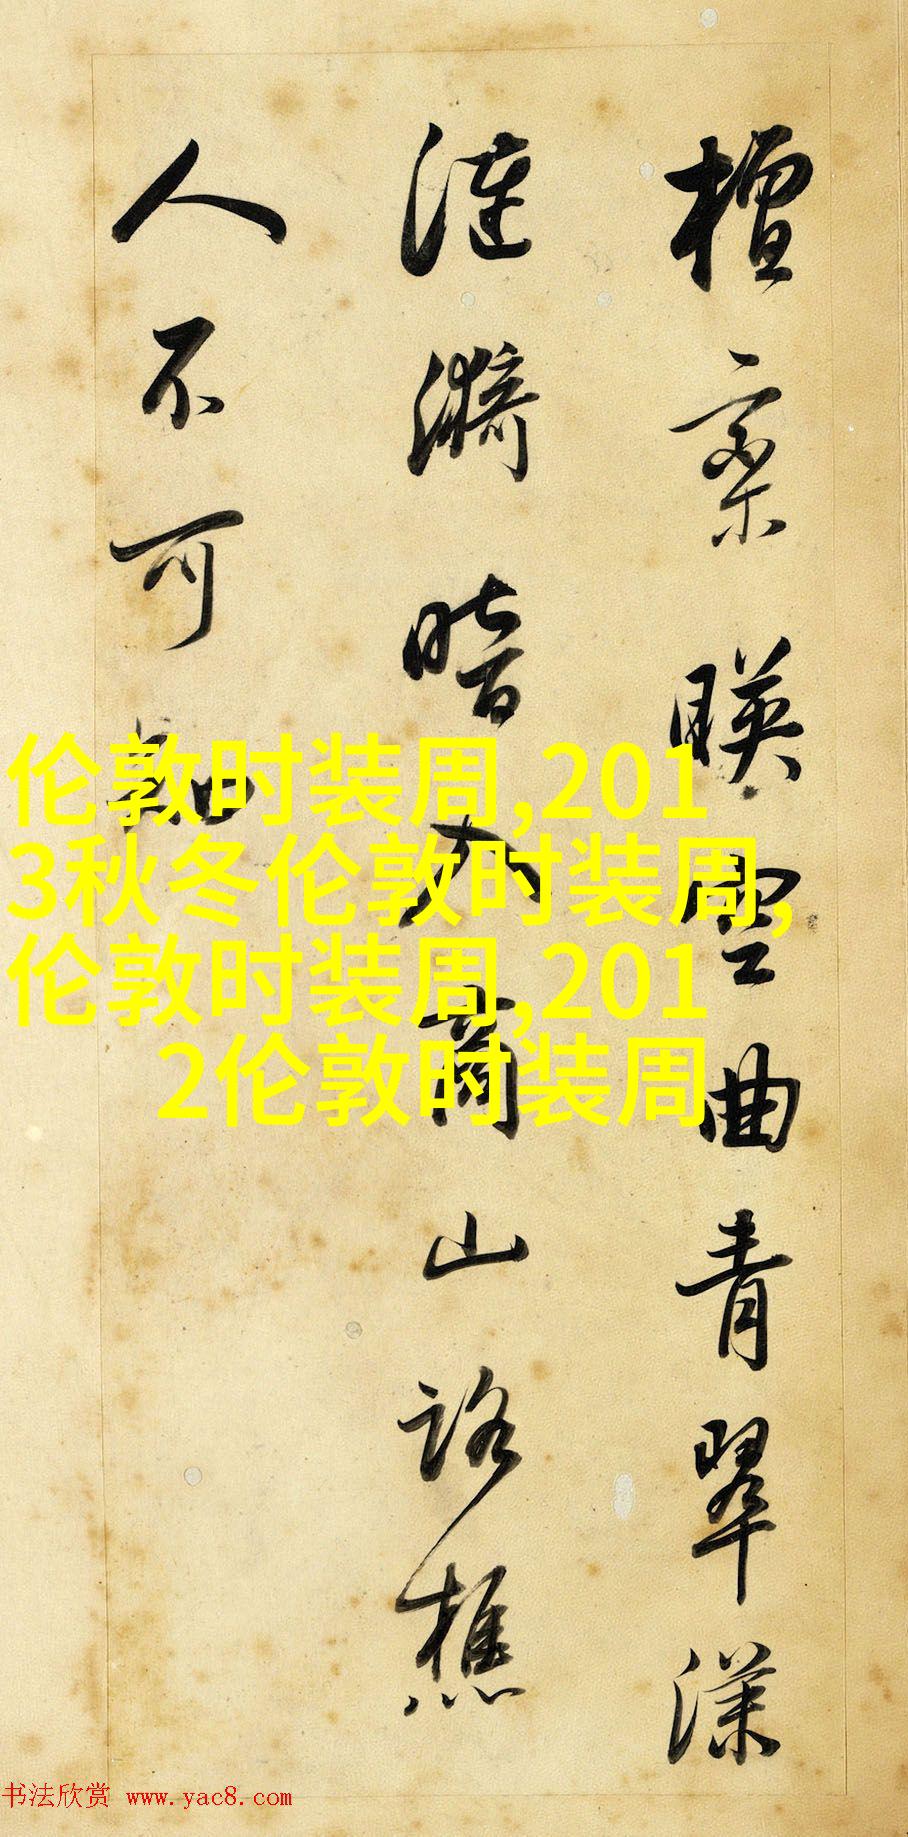 檀栾暎空曲青翠漾
漣漪暗入商山路樵
人不可知
伦敦时装周,201
3秋冬伦敦时装周,
伦敦时装周,201
2伦敦时装周
书法欣赏 www.yac8.com